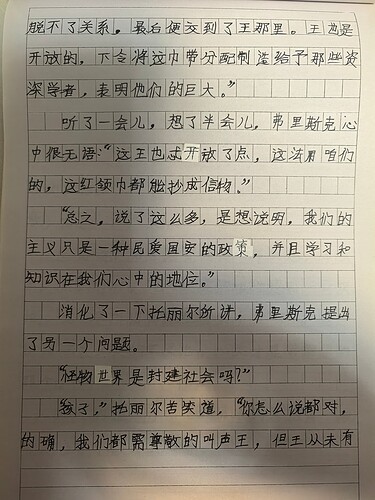 脱不了关系，最后便交到了王那里。王也是
开放的，下令将这巾带分配制造给予那些资
深学者，表明他们的巨大。”
听了一会儿，想了半会儿，弗里斯克心
中很无语：“这王也忒开放了点，这法用咱们
的，这红领巾都能抄成信物。”
“总之，说了这么多，是想说明，我们的
主义只是一种民爱国安的政策，并且学习和
知识在我们心中的地位。”
消化了一下托丽尔所讲，弗里斯克提出
了另一个问题。
“怪物世界是封建社会吗？”
“孩子，”托丽尔苦笑道，“你怎么说都对，
的确，我们都需尊敬的叫声王，但王从未有